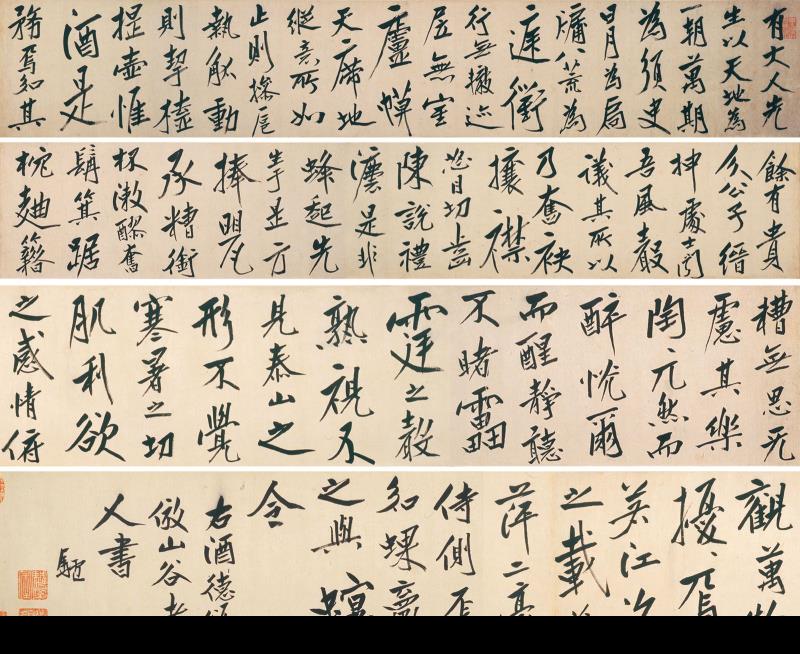 有大人先
生以天地為
一朝萬期
為須臾
日月為扃
牖八荒為
庭衢
行無轍迹
居無室
廬幙
天席地
縱意所如
止則操卮
執觚動
則挈榼
提壺惟
酒是
務焉知其
餘有貴
介公子縉
紳處士聞
吾風聲
議其所以
乃奮袂
攘襟
怒目切齒
陳說禮
灋是非
蜂起先
生於是方
捧罌
承糟銜
杯漱醪奮
髯箕踞
枕麴籍
糟無思无
慮其樂
陶兀然而
醉恍爾
而醒靜聽
不睹雷
霆之聲
熟視不
見泰山之
形不覺
寒暑之切
肌利欲
之感情俯
觀萬物
擾〻焉
若江
之載
萍二豪
侍側焉
如蜾蠃
之與螟
令
右酒德頌
倣山谷老
人書